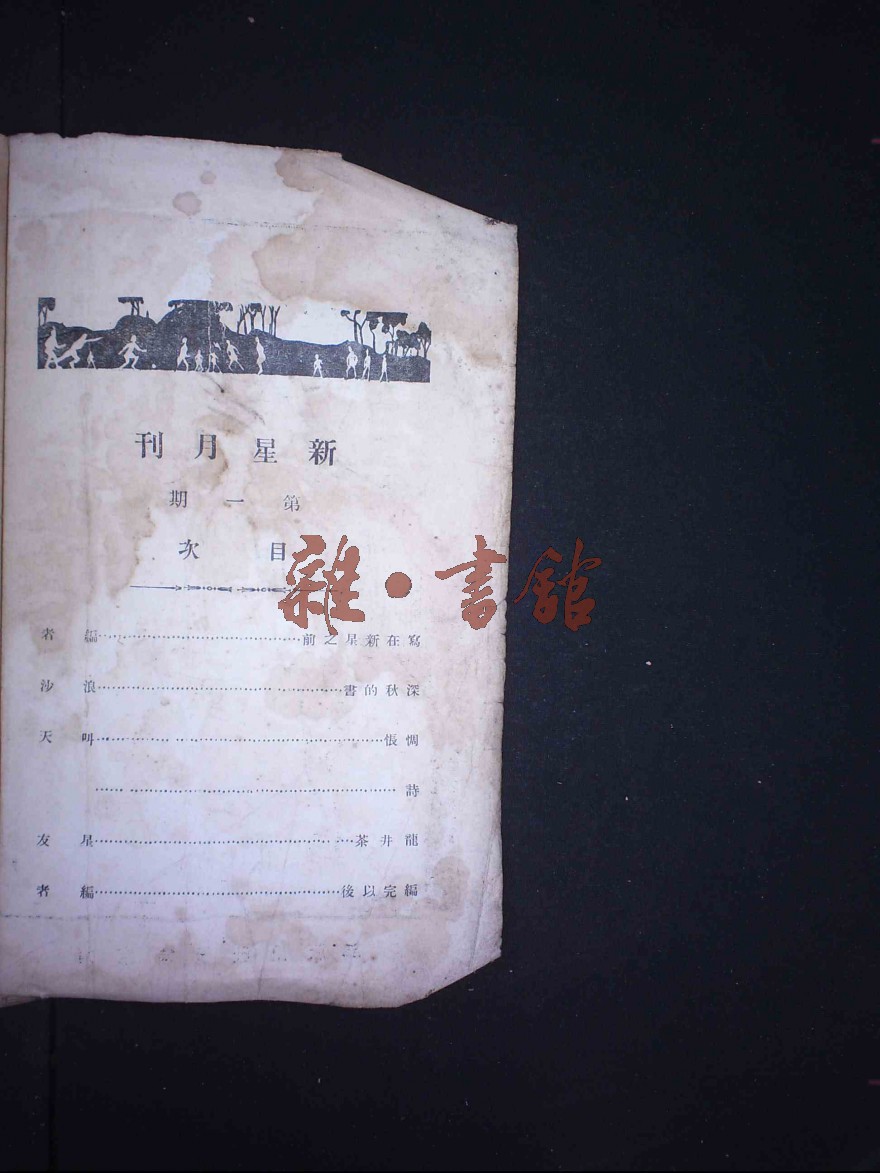 新星月刊
第一期
目次
雜·書館
寫在新星之前……編者
深秋的書……浪沙
惆悵……叫天
詩……
龍井茶……星友
編完以後……編者